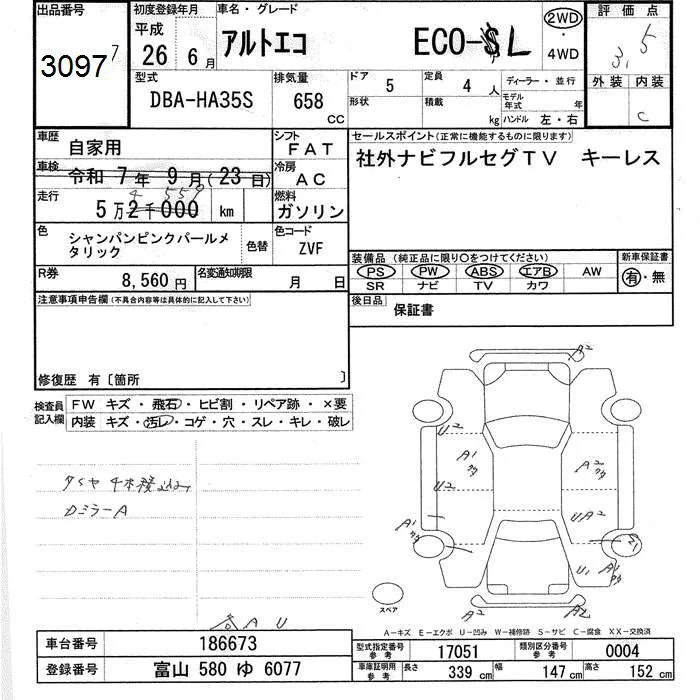 出品番号 初度登録年月 車名・グレード 2WD ・ 4WD 評価点
3097 7 平成 26 6月 アルトエコ ECO-L 3.5
型式 排気量 ドア 定員 ディーラー・並行 外装 内装
DBA-HA35S 658 CC 5 4人 モデル年式 年 C
形状 積載 kg ハンドル 左・右
車歴 自家用 シフト FAT セールスポイント(正常に機能するものに限ります)
車検 令和 7年 9月(23日) 冷房 AC 社外ナビフルセグTV キーレス
4 559
走行 5万2千000 km 燃料 ガソリン
色 シャンパンピンクパールメタリック 色替 色コード ZVF
装備品(純正品に限り○をつけてください) 新車保証書
R券 8,560円 名変通知期限 月 日 PS PW ABS エアB AW 有・無
SR ナビ TV カワ
注意事項申告欄(不具合内容等は具体的に記入して下さい) 後日品 保証書
修復歴 有〔箇所 〕
検査員記入欄 FW キズ・飛石・ヒビ割・リペア跡・×要
内装 キズ・汚レ・コゲ・穴・スレ・キレ・破レ
タイヤ 4本積込み
DミラーA
A2
U2
A1 A2
U2
UA2
A1
U1 A1
A2 A2
スペア
A U
A-キズ E-エクボ U-凹み W-補修跡 S-サビ C-腐食 XX-交換済
車台番号 186673 型式指定番号 参考 17051 類別区分番号 参考 0004
登録番号 富山 580 ゆ 6077 車庫証明用 参考 長さ 339 cm 幅 147 cm 高さ 152 cm